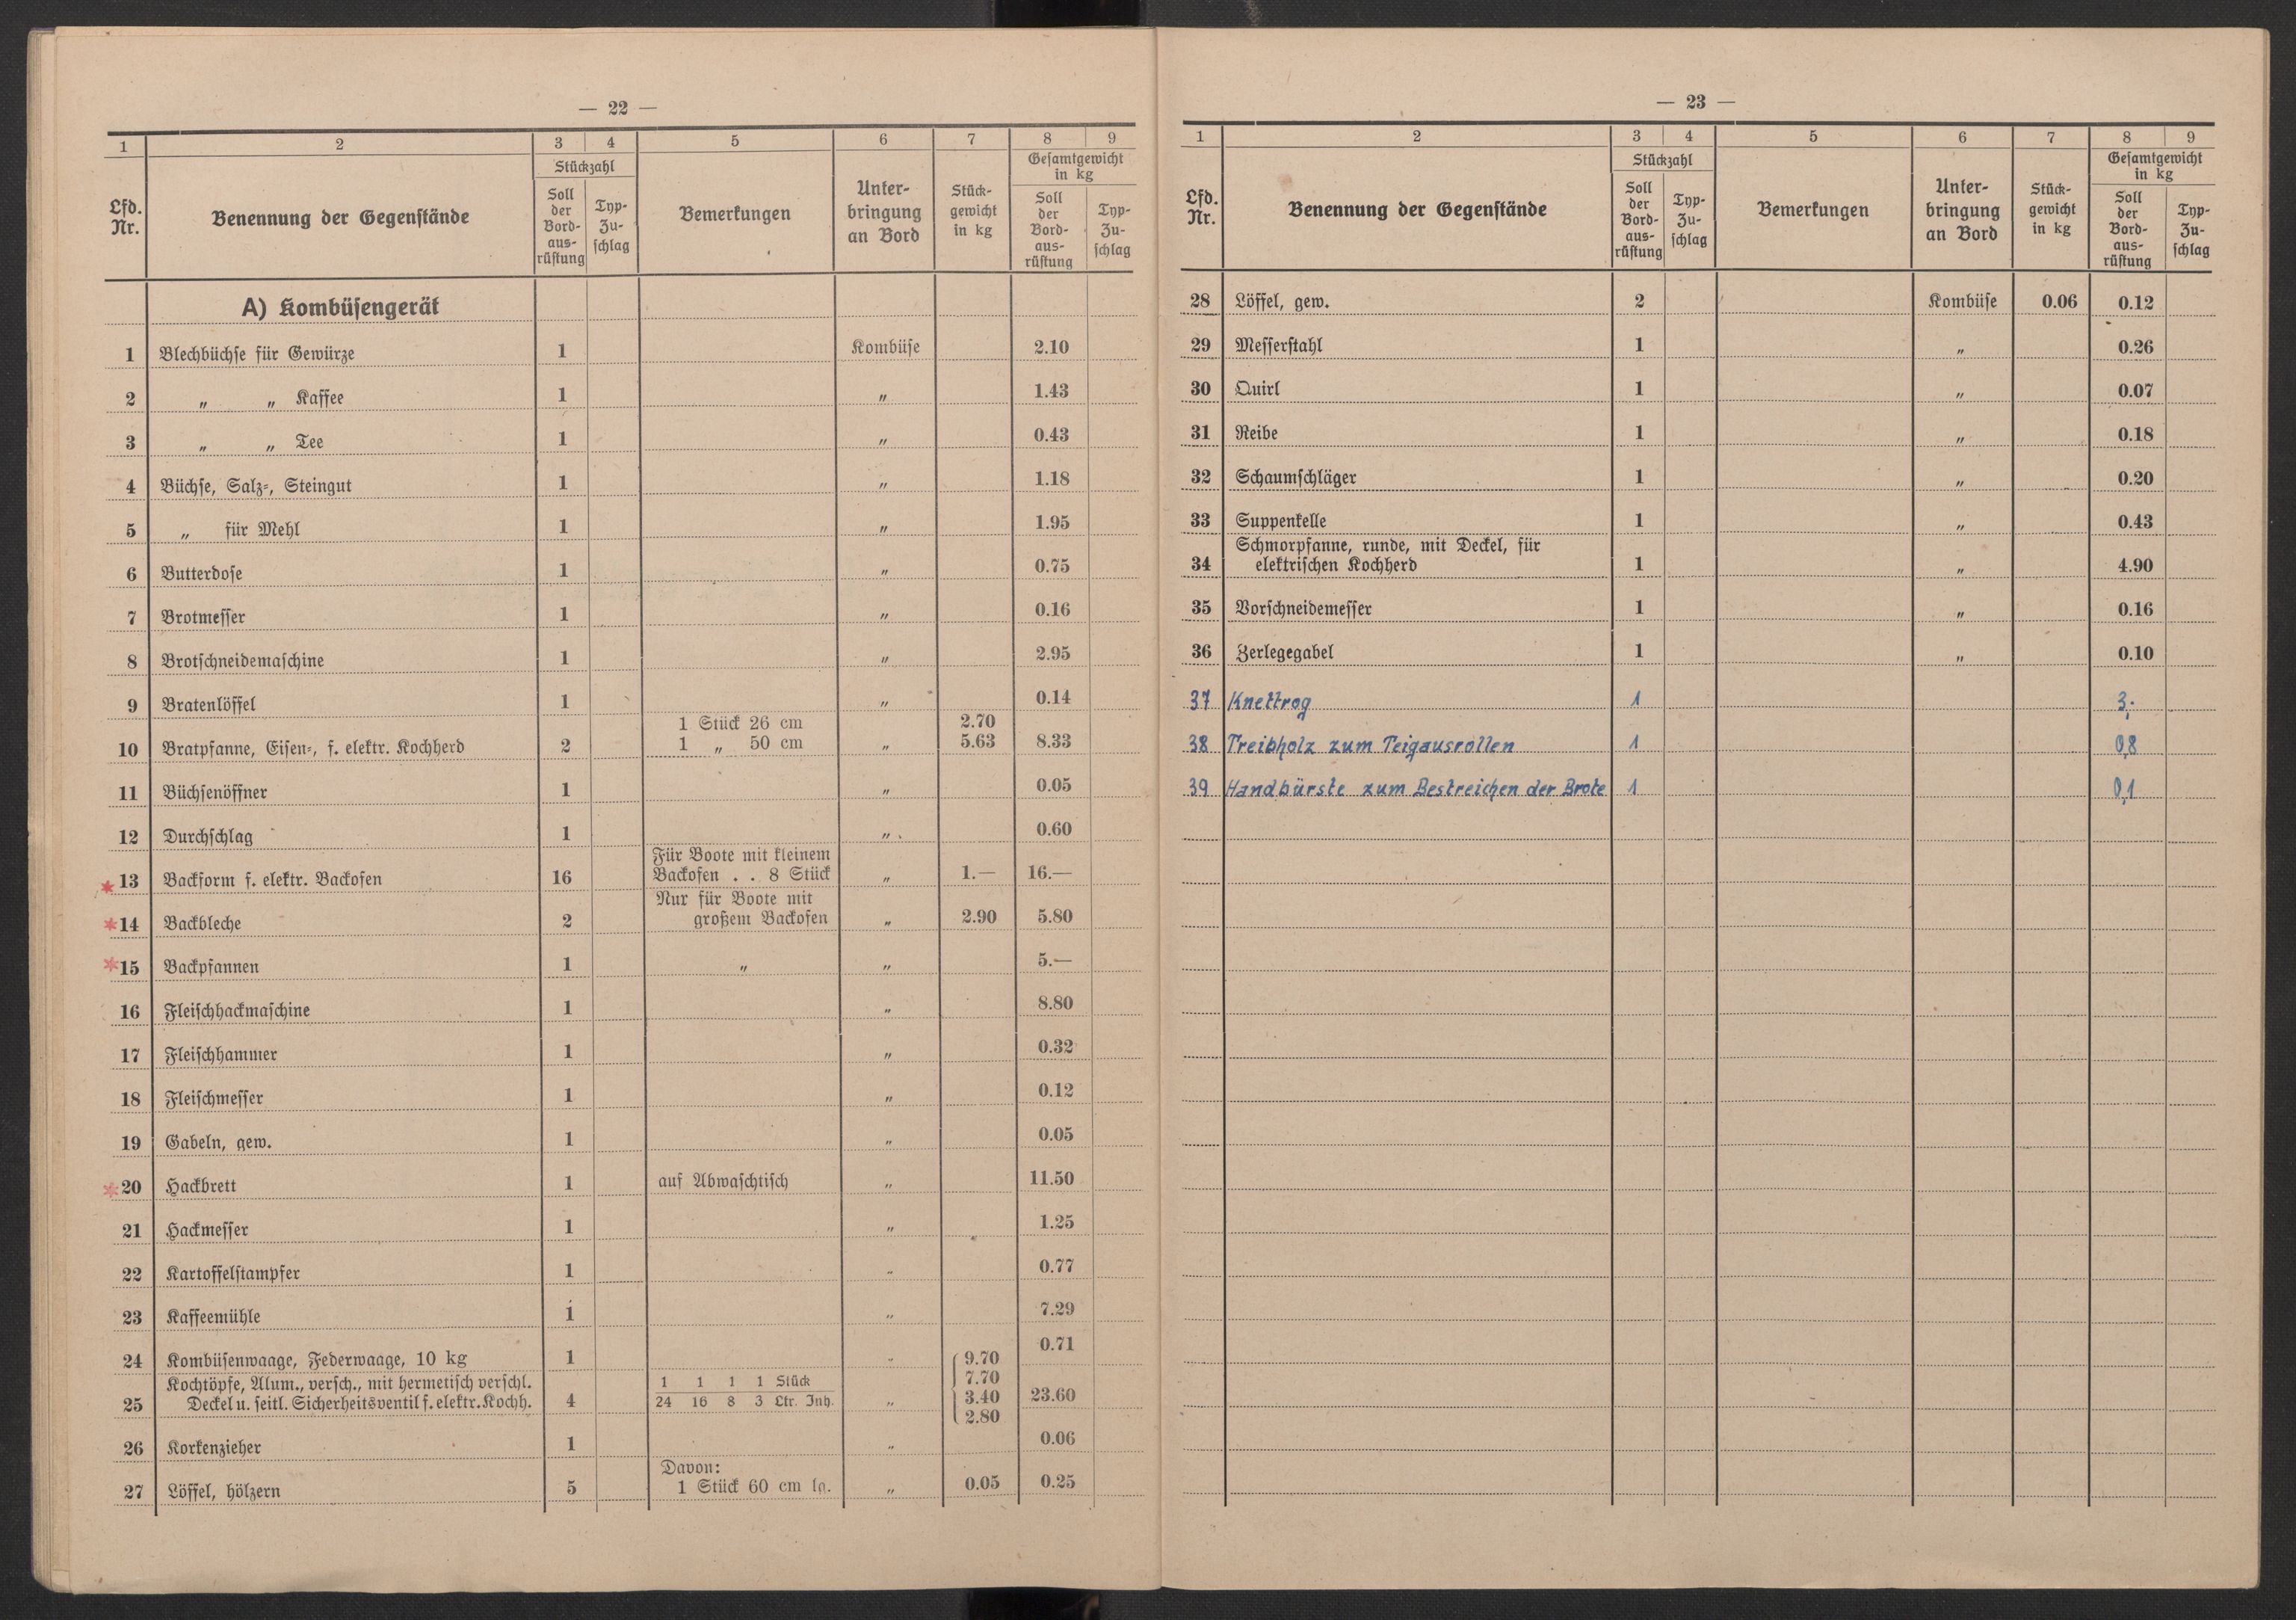 — 22 —
1 2 3 4 5 6 7 8 9
Lfd. Nr. Benennung der Gegenstände Stückzahl Soll der Bord-aus-rüstung Typ-Zu-schlag Bemerkungen Unter-bringung an Bord Stück-gewicht in kg Gesamtgewicht in kg Soll der Bord-aus-rüstung Typ-Zu-schlag
A) Kombüsengerät
1 Blechbüchse für Gewürze 1 Kombüse 2.10
2 „ „ Kaffee 1 „ 1.43
3 „ „ Tee 1 „ 0.43
4 Büchse, Salz-, Steingut 1 „ 1.18
5 „ für Mehl 1 „ 1.95
6 Butterdose 1 „ 0.75
7 Brotmesser 1 „ 0.16
8 Brotschneidemaschine 1 „ 2.95
9 Bratenlöffel 1 „ 0.14
1 Stück 26 cm 2.70
10 Bratpfanne, Eisen-, f. elektr. Kochherd 2 1 „ 50 cm „ 5.63 8.33
11 Büchsenöffner 1 „ 0.05
12 Durchschlag 1 „ 0.60
Für Boote mit kleinem
* 13 Backform f. elektr. Backofen 16 Backofen . . 8 Stück „ 1.— 16.—
Nur für Boote mit
* 14 Backbleche 2 großem Backofen „ 2.90 5.80
* 15 Backpfannen 1 „ „ 5.—
16 Fleischhackmaschine 1 „ 8.80
17 Fleischhammer 1 „ 0.32
18 Fleischmesser 1 „ 0.12
19 Gabeln, gew. 1 „ 0.05
* 20 Hackbrett 1 auf Abwaschtisch „ 11.50
21 Hackmesser 1 „ 1.25
22 Kartoffelstampfer 1 „ 0.77
23 Kaffeemühle 1 „ 7.29
24 Kombüsenwaage, Federwaage, 10 kg 1 „ 0.71
Kochtöpfe, Alum., versch., mit hermetisch verschl. 1 1 1 1 Stück 9.70 7.70
25 Deckel u. seitl. Sicherheitsventil f. elektr. Kochh. 4 24 16 8 3 Ltr. Inh. „ 3.40 2.80 23.60
26 Korkenzieher 1 „ 0.06
Davon:
27 Löffel, hölzern 5 1 Stück 60 cm lg. „ 0.05 0.25
— 23 —
1 2 3 4 5 6 7 8 9
Lfd. Nr. Benennung der Gegenstände Stückzahl Soll der Bord-aus-rüstung Typ-Zu-schlag Bemerkungen Unter-bringung an Bord Stück-gewicht in kg Gesamtgewicht in kg Soll der Bord-aus-rüstung Typ-Zu-schlag
28 Löffel, gew. 2 Kombüse 0.06 0.12
29 Messerstahl 1 „ 0.26
30 Quirl 1 „ 0.07
31 Reibe 1 „ 0.18
32 Schaumschläger 1 „ 0.20
33 Suppenkelle 1 „ 0.43
Schmorpfanne, runde, mit Deckel, für
34 elektrischen Kochherd 1 „ 4.90
35 Vorschneidemesser 1 „ 0.16
36 Zerlegegabel 1 „ 0.10
37 Knettrog 1 3,-
38 Treibholz zum Teigausrollen 1 0,8
39 Handbürste zum Bestreichen der Brote 1 0,1